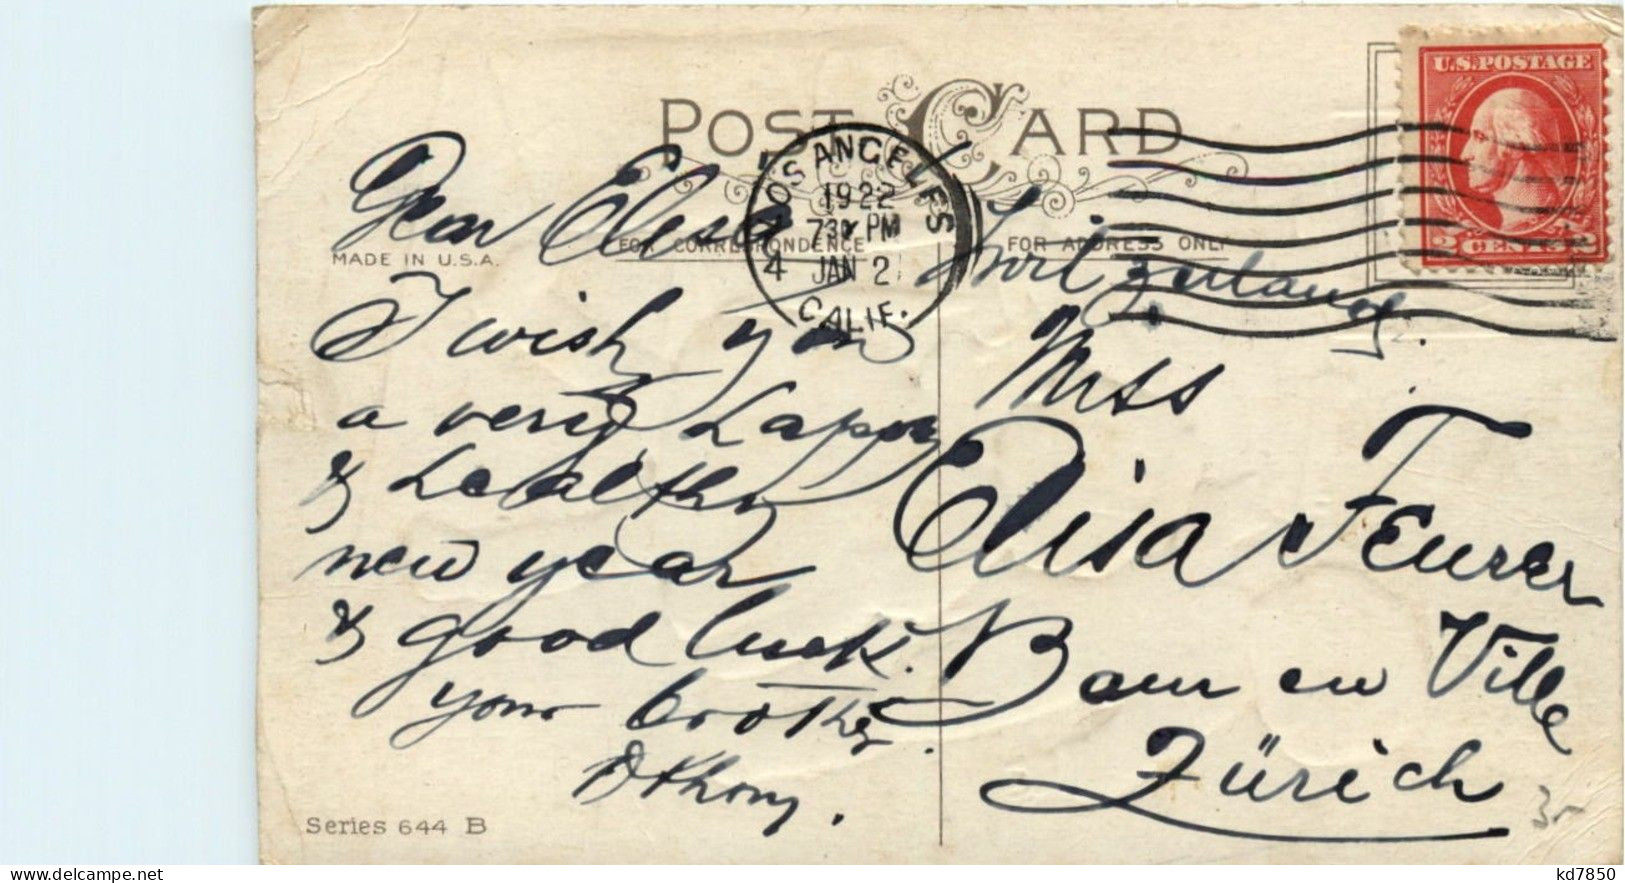 POST CARD
MADE IN U.S.A.
FOR CORRESPONDENCE
FOR ADDRESS ONLY
U.S.POSTAGE
2 CENTS 2
LOS ANGELES
1922
730 PM
4 JAN 2
CALIF.
Dear Elisa
I wish you
a very happy
& healthy
new year
& good luck.
your brother.
Switzerland.
Miss
Elisa Feurer
Bam en Ville
Zürich
Series 644 B
delcampe.net
kd7850